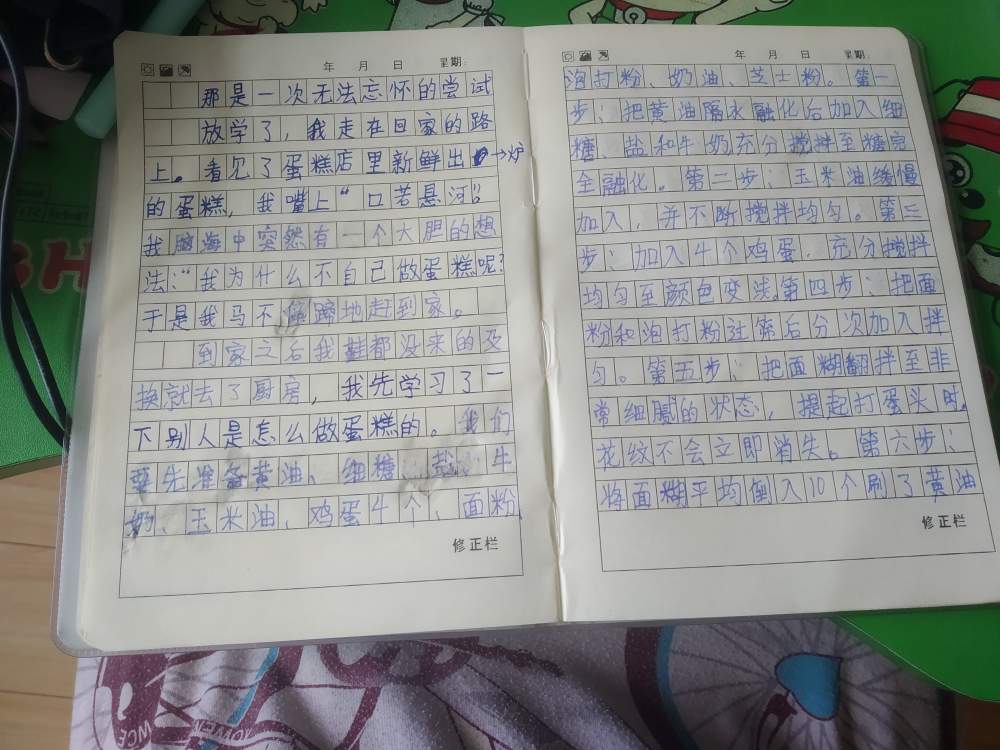 年 月 日 星期:
那是一次无法忘怀的尝试
放学了，我走在回家的路
上。看见了蛋糕店里新鲜出→炉
的蛋糕，我嘴上“口若悬河”！
我脑海中突然有一个大胆的想
法：“我为什么不自己做蛋糕呢？
于是我马不停蹄地赶到家。
到家之后我鞋都没来的及
换就去了厨房，我先学习了一
下别人是怎么做蛋糕的。我们
要先准备黄油、细糖 盐 牛
奶、玉米油、鸡蛋4个、面粉、
修正栏
年 月 日 星期:
泡打粉、奶油、芝士粉。第一
步：把黄油隔水融化后加入细
糖、盐和牛奶充分搅拌至糖完
全融化。第二步：玉米油缓慢
加入，并不断搅拌均匀。第三
步：加入4个鸡蛋，充分搅拌
均匀至颜色变淡。第四步：把面
粉和泡打粉过筛后分次加入拌
匀。第五步：把面糊翻拌至非
常细腻的状态，提起打蛋头时，
花纹不会立即消失。第六步：
将面糊平均倒入10个刷了黄油
修正栏